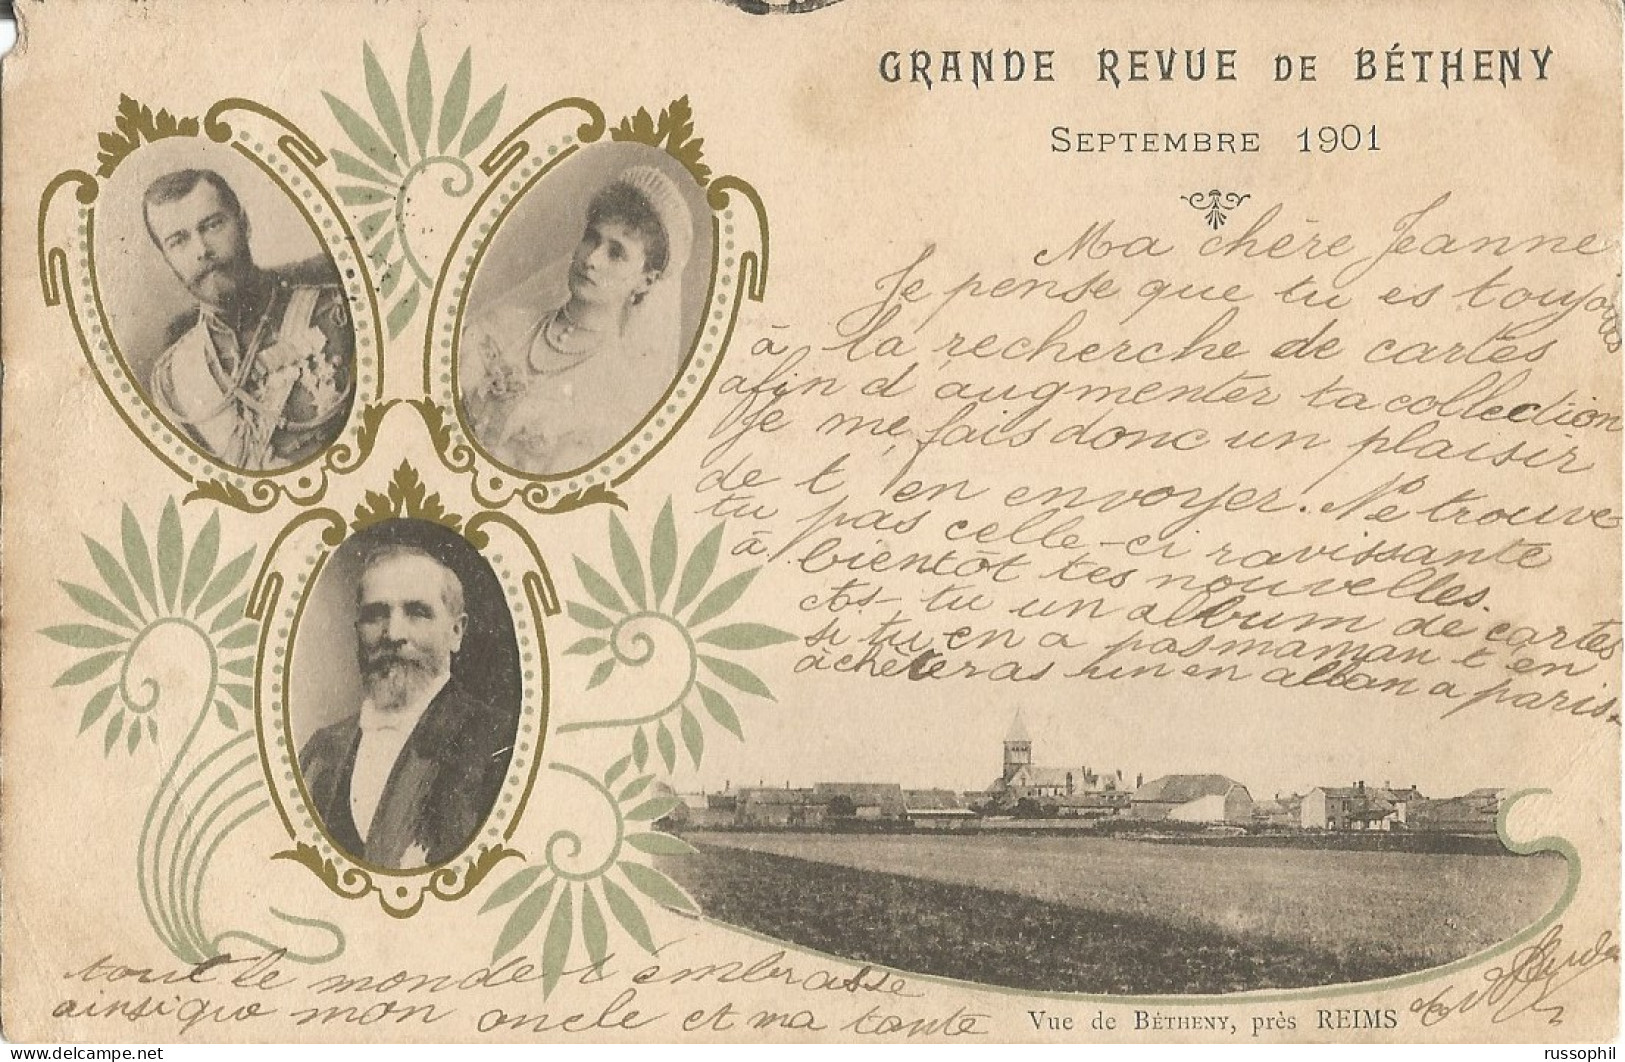 GRANDE REVUE DE BÉTHENY
SEPTEMBRE 1901
Ma chère Jeanne
Je pense que tu es toujours
à la recherche de cartes
afin d'augmenter ta collection
je me fais donc un plaisir
de t'en envoyer. Ne trouve
tu pas celle-ci ravissante
à bientôt tes nouvelles.
As-tu un album de cartes
si tu en a pas maman t'en
achèteras un en allan a paris.
tout le monde t'embrasse
ainsi que mon oncle et ma tante
Vue de BÉTHENY, près REIMS
russophil
www.delcampe.net